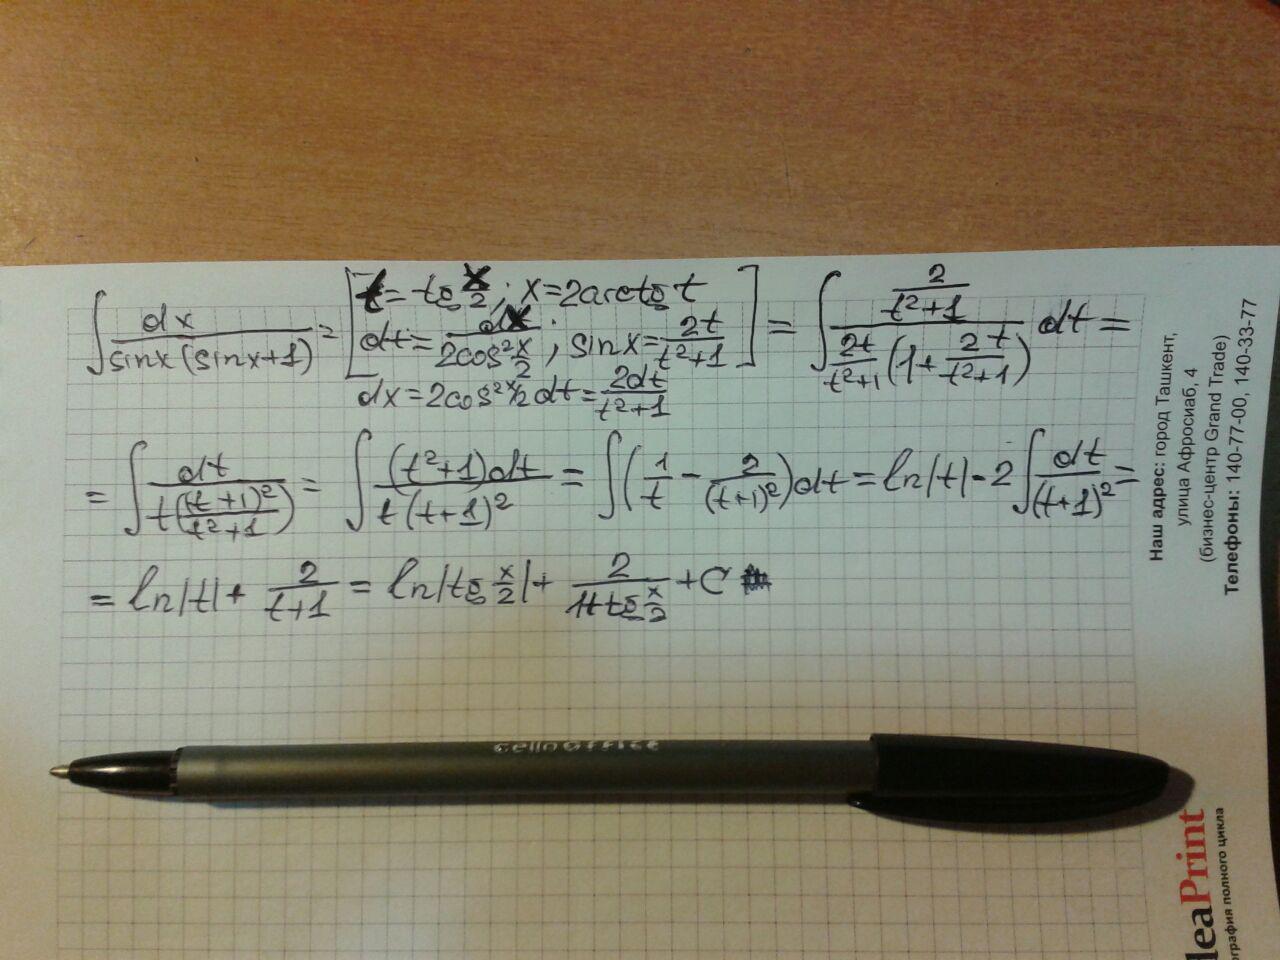 ∫ dx / (sinx(sinx+1)) = [ t = tg x/2 ; x = 2arctg t
dt = dx / (2cos² x/2) ; sinx = 2t / (t²+1) ] = ∫ (2 / (t²+1)) / ((2t / (t²+1)) (1 + 2t / (t²+1))) dt =
dx = 2cos² x/2 dt = 2dt / (t²+1)
= ∫ dt / (t ((t+1)² / (t²+1))) = ∫ (t²+1)dt / (t(t+1)²) = ∫ (1/t - 2/(t+1)²) dt = ln|t| - 2 ∫ dt / (t+1)² =
= ln|t| + 2 / (t+1) = ln|tg x/2| + 2 / (1+tg x/2) + C
Наш адрес: город Ташкент,
улица Афросиаб, 4
(бизнес-центр Grand Trade)
Телефоны: 140-77-00, 140-33-77
deaPrint
ография полного цикла
cello OFFICE